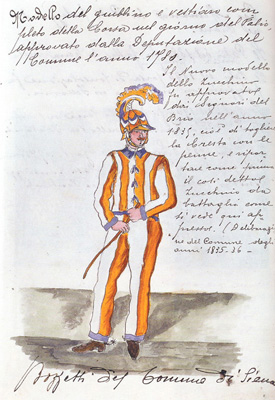 Modello del giubbino e vestiario com
pleto della Corsa nel giorno del Palio,
approvato dalla Deputazione del
Comune l'anno
Il Nuovo modello
dello Zucchino
fu approvato
dai Signori del
Brio nell'anno
1835, cioè di toglier
la Cresta con le
penne, e ripor
tare come prima
il così detto
Zucchino da
battaglia come
si vede qui ap
presso. (Deliberazio
ne del Comune degli
anni 1835-36.
Bozzetti del Comune di Siena